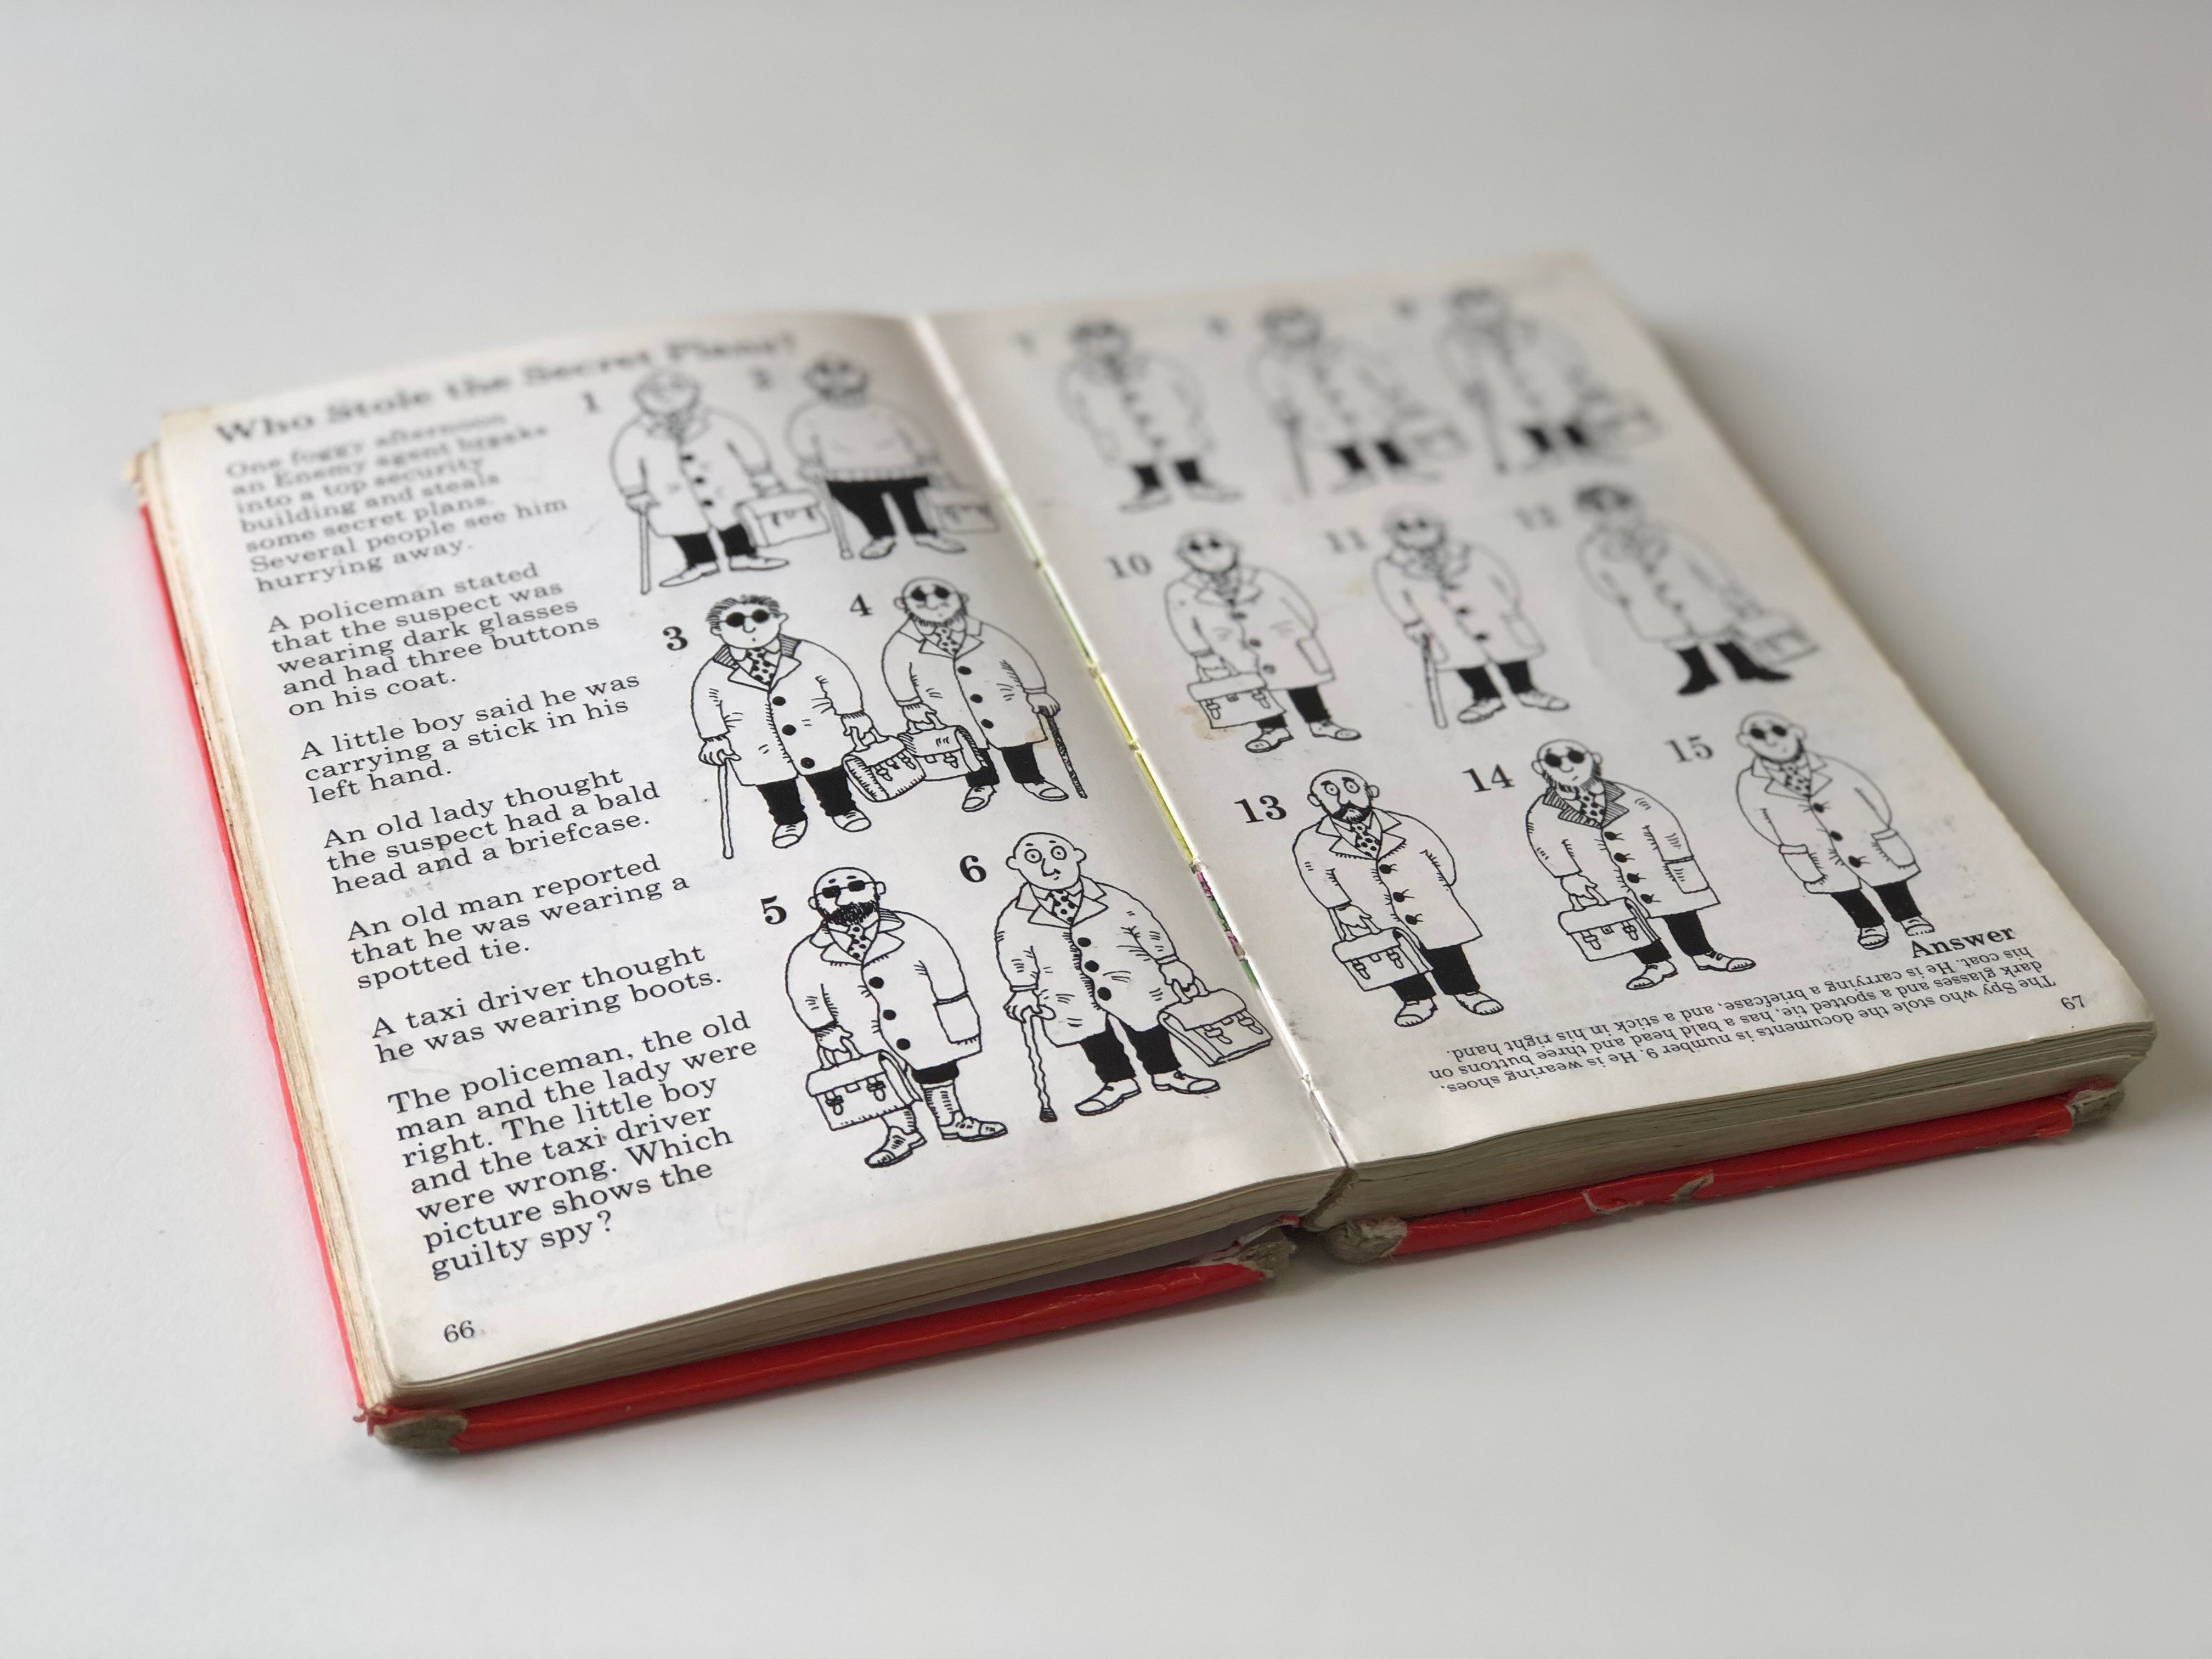 Who Stole the Secret Plans?
One foggy afternoon
an Enemy agent breaks
into a top security
building and steals
some secret plans.
Several people see him
hurrying away.
A policeman stated
that the suspect was
wearing dark glasses
and had three buttons
on his coat.
A little boy said he was
carrying a stick in his
left hand.
An old lady thought
the suspect had a bald
head and a briefcase.
An old man reported
that he was wearing a
spotted tie.
A taxi driver thought
he was wearing boots.
The policeman, the old
man and the lady were
right. The little boy
and the taxi driver
were wrong. Which
picture shows the
guilty spy?
66
1
2
3
4
5
6
10
11
12
13
14
15
Answer
The Spy who stole the documents is number 9. He is wearing shoes,
dark glasses and a spotted tie, has a bald head and three buttons on
his coat. He is carrying a briefcase, and a stick in his right hand.
67